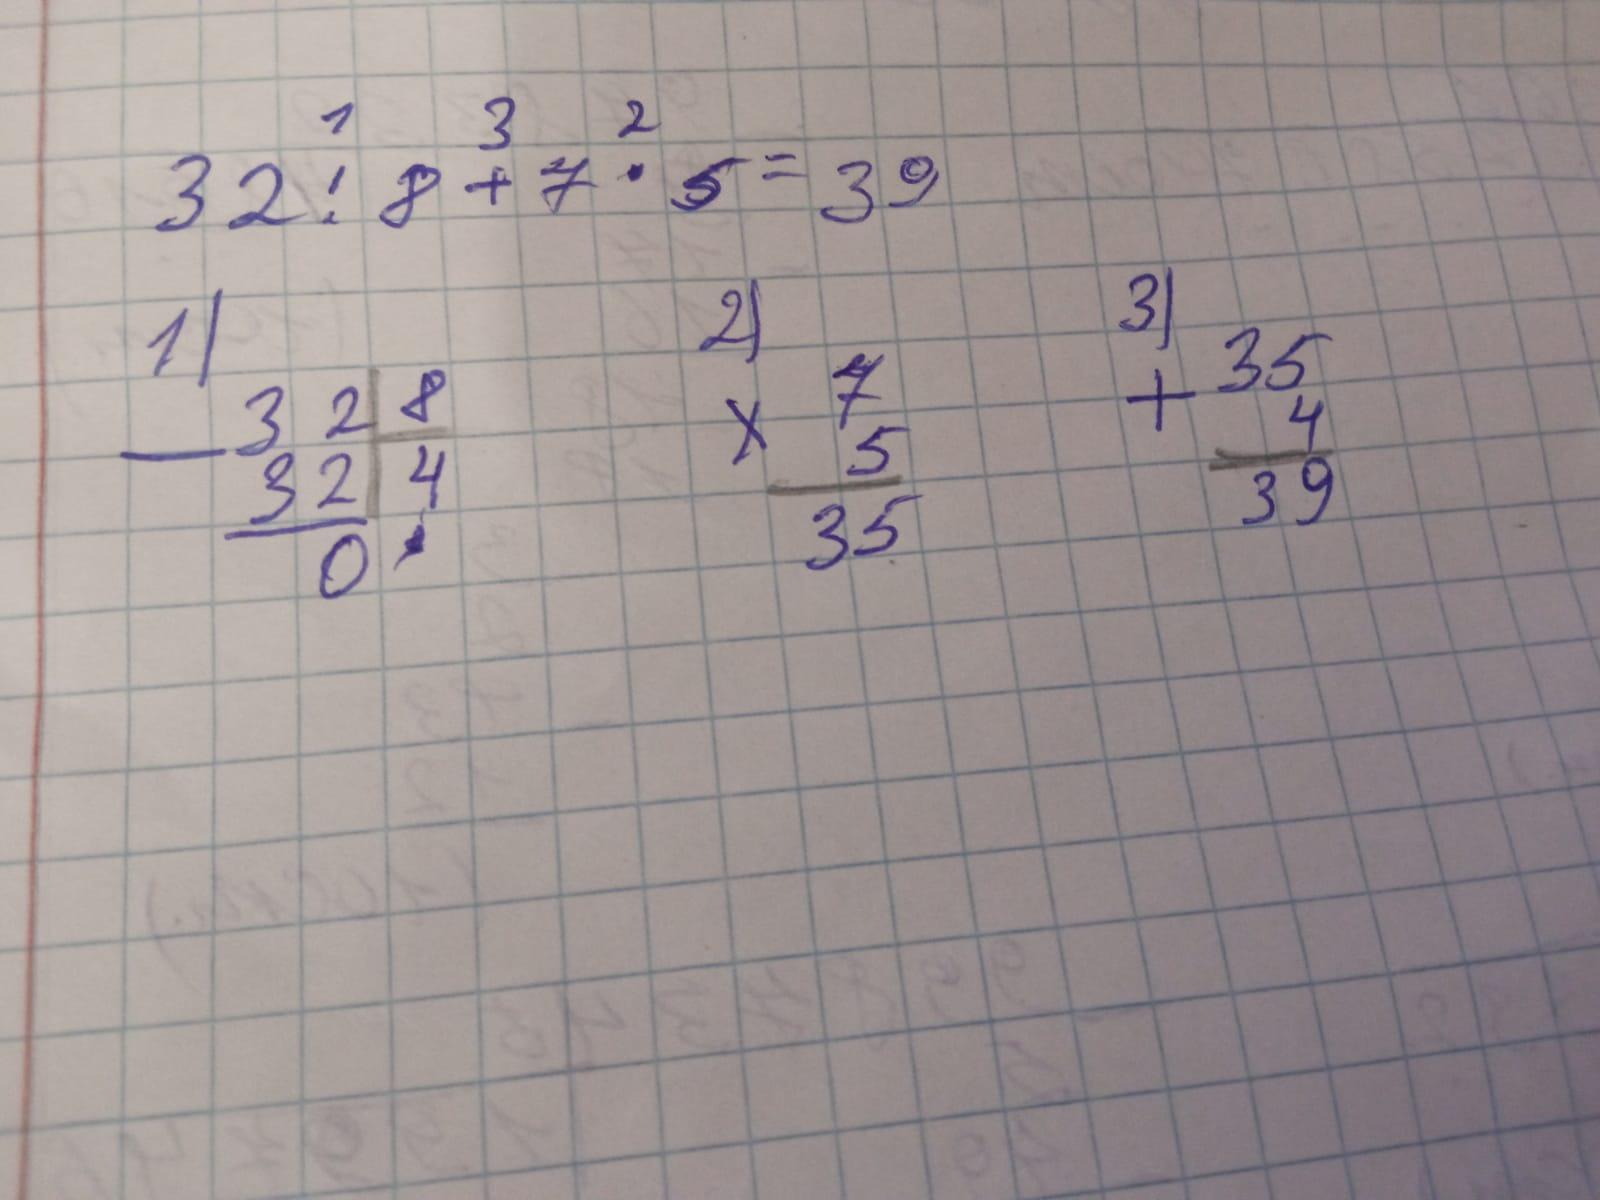 1 3 2
32 : 8 + 7 · 5 = 39
1) 2) 3)
32 8 7 35
— × +
32 4 5 4
0 35 39